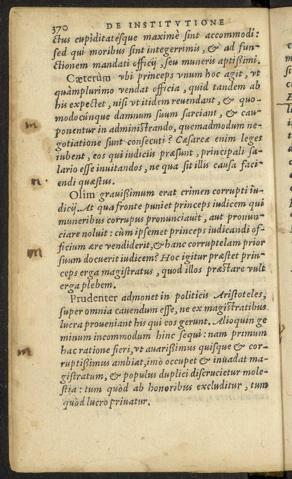 370 DE INSTITVTIONE
ctus cupiditatésque maximè sint accommodi:
sed qui moribus sint integerrimis, & ad fun-
ctionem mandati officij, seu muneris aptissimi.
Cæterùm vbi princeps vnum hoc agit, vt
quàmplurimo vendat officia, quid tandem ab
his expectet, nisi vt itidem reuendant, & quo-
modocúnque damnum suum sarciant, & cau-
ponentur in administrando, quemadmodum ne-
gotiatione sunt consecuti? Cæsareæ enim leges
iubent, eos qui iudiciis præsunt, principali sa-
lario esse inuitandos, ne qua sit illis causa faci-
endi quæstus.
Olim grauissimum erat crimen corrupti iu-
dicij. At qua fronte puniet princeps iudicem qui
muneribus corrupus pronunciauit, aut pronun-
ciare noluit: cùm ipsemet princeps iudicandi of-
ficium ære vendiderit, & hanc corruptelam prior
suum docuerit iudicem? Hoc igitur præstet prin-
ceps erga magistratus, quod illos præstare vult
erga plebem.
Prudenter admonet in politicis Aristoteles,
super omnia cauendum esse, ne ex magistratibus
lucra proueniant his qui eos gerunt. Alioquin ge
minum incommodum hinc sequi: nam primùm
hac ratione fieri, vt auarissimus quisque & cor-
ruptissimus ambiat, imò occupet & inuadat ma-
gistratum, & populus duplici discrucietur mole-
stia: tum quòd ab honoribus excluditur, tum
quòd lucro priuatur.